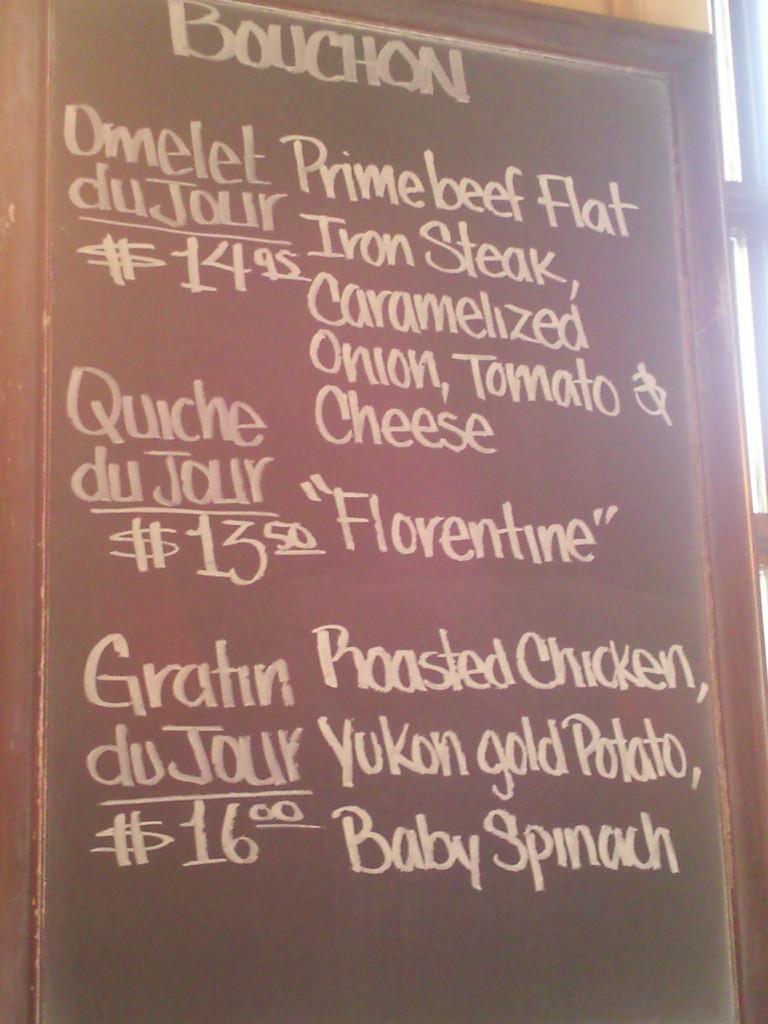 BOUCHON
Omelet
du Jour
$14.95
Prime beef Flat
Iron Steak,
Caramelized
Onion, Tomato &
Cheese
Quiche
du Jour
$13.50
"Florentine"
Gratin
du Jour
$16.00
Roasted Chicken,
Yukon gold Potato,
Baby Spinach